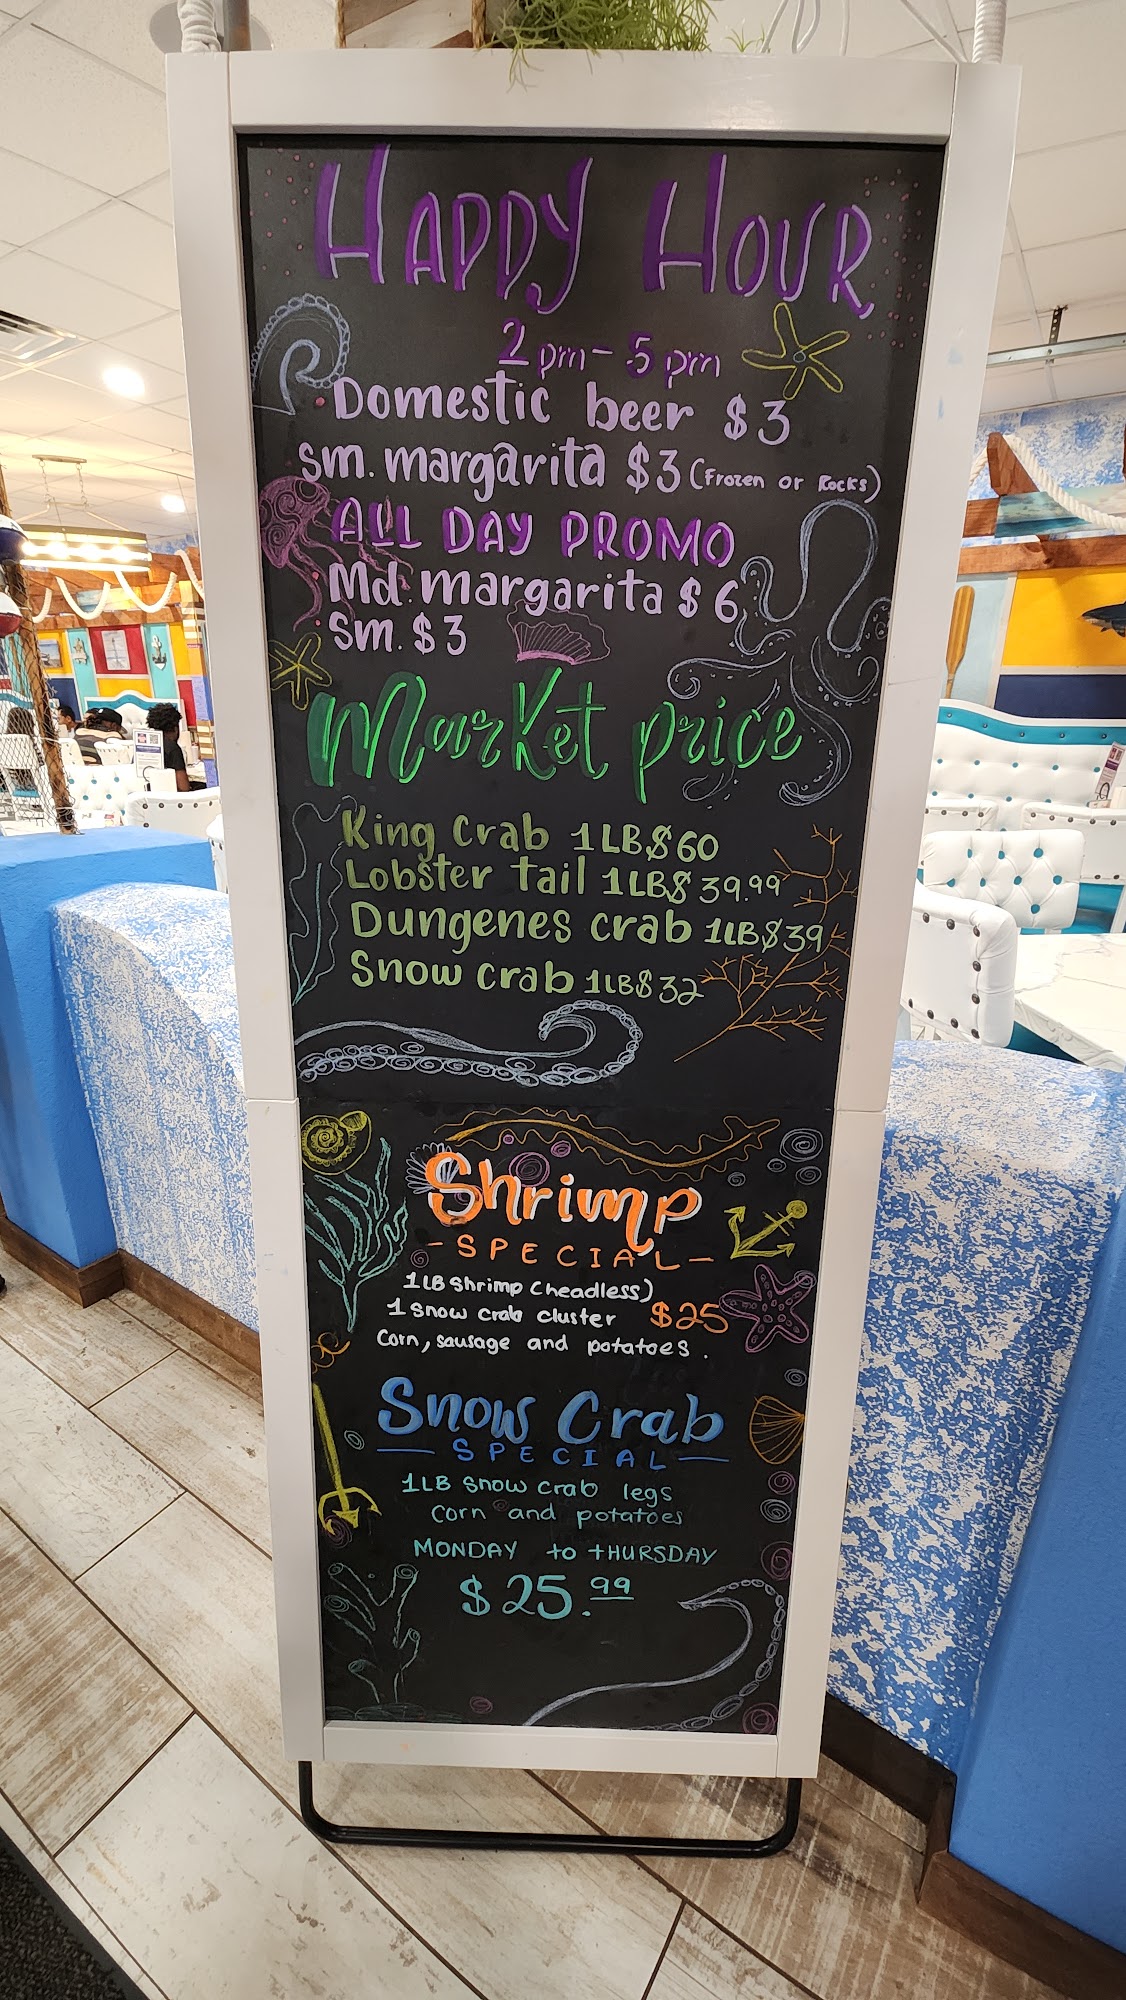 HAPPY HOUR
2 pm - 5 pm
Domestic beer $3
sm. margarita $3 (Frozen or Rocks)
ALL DAY PROMO
Md. margarita $6
sm. $3
Market price
King Crab 1LB$60
Lobster tail 1LB$ 39.99
Dungenes crab 1LB$39
Snow crab 1LB$ 32
Shrimp
- SPECIAL -
1LB Shrimp (headless)
1 snow crab cluster $25
Corn, sausage and potatoes.
Snow Crab
— SPECIAL —
1LB snow crab legs
Corn and potatoes
MONDAY to tHURSDAY
$25.99